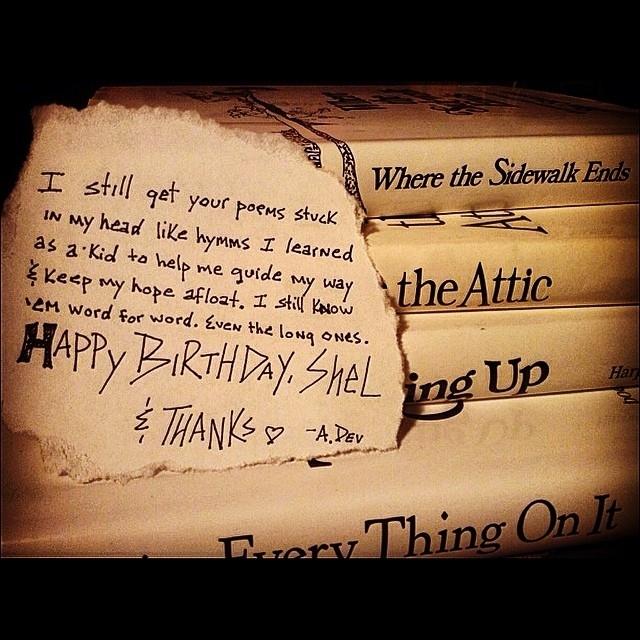 I still get your poems stuck
in my head like hymms I learned
as a kid to help me guide my way
& keep my hope afloat. I still know
'em word for word. Even the long ones.
HAPPY BIRTHDAY, Shel
& THANKS ♡ -A.Dev
Where the Sidewalk Ends
the Attic
ing Up
Harp
Every Thing On It